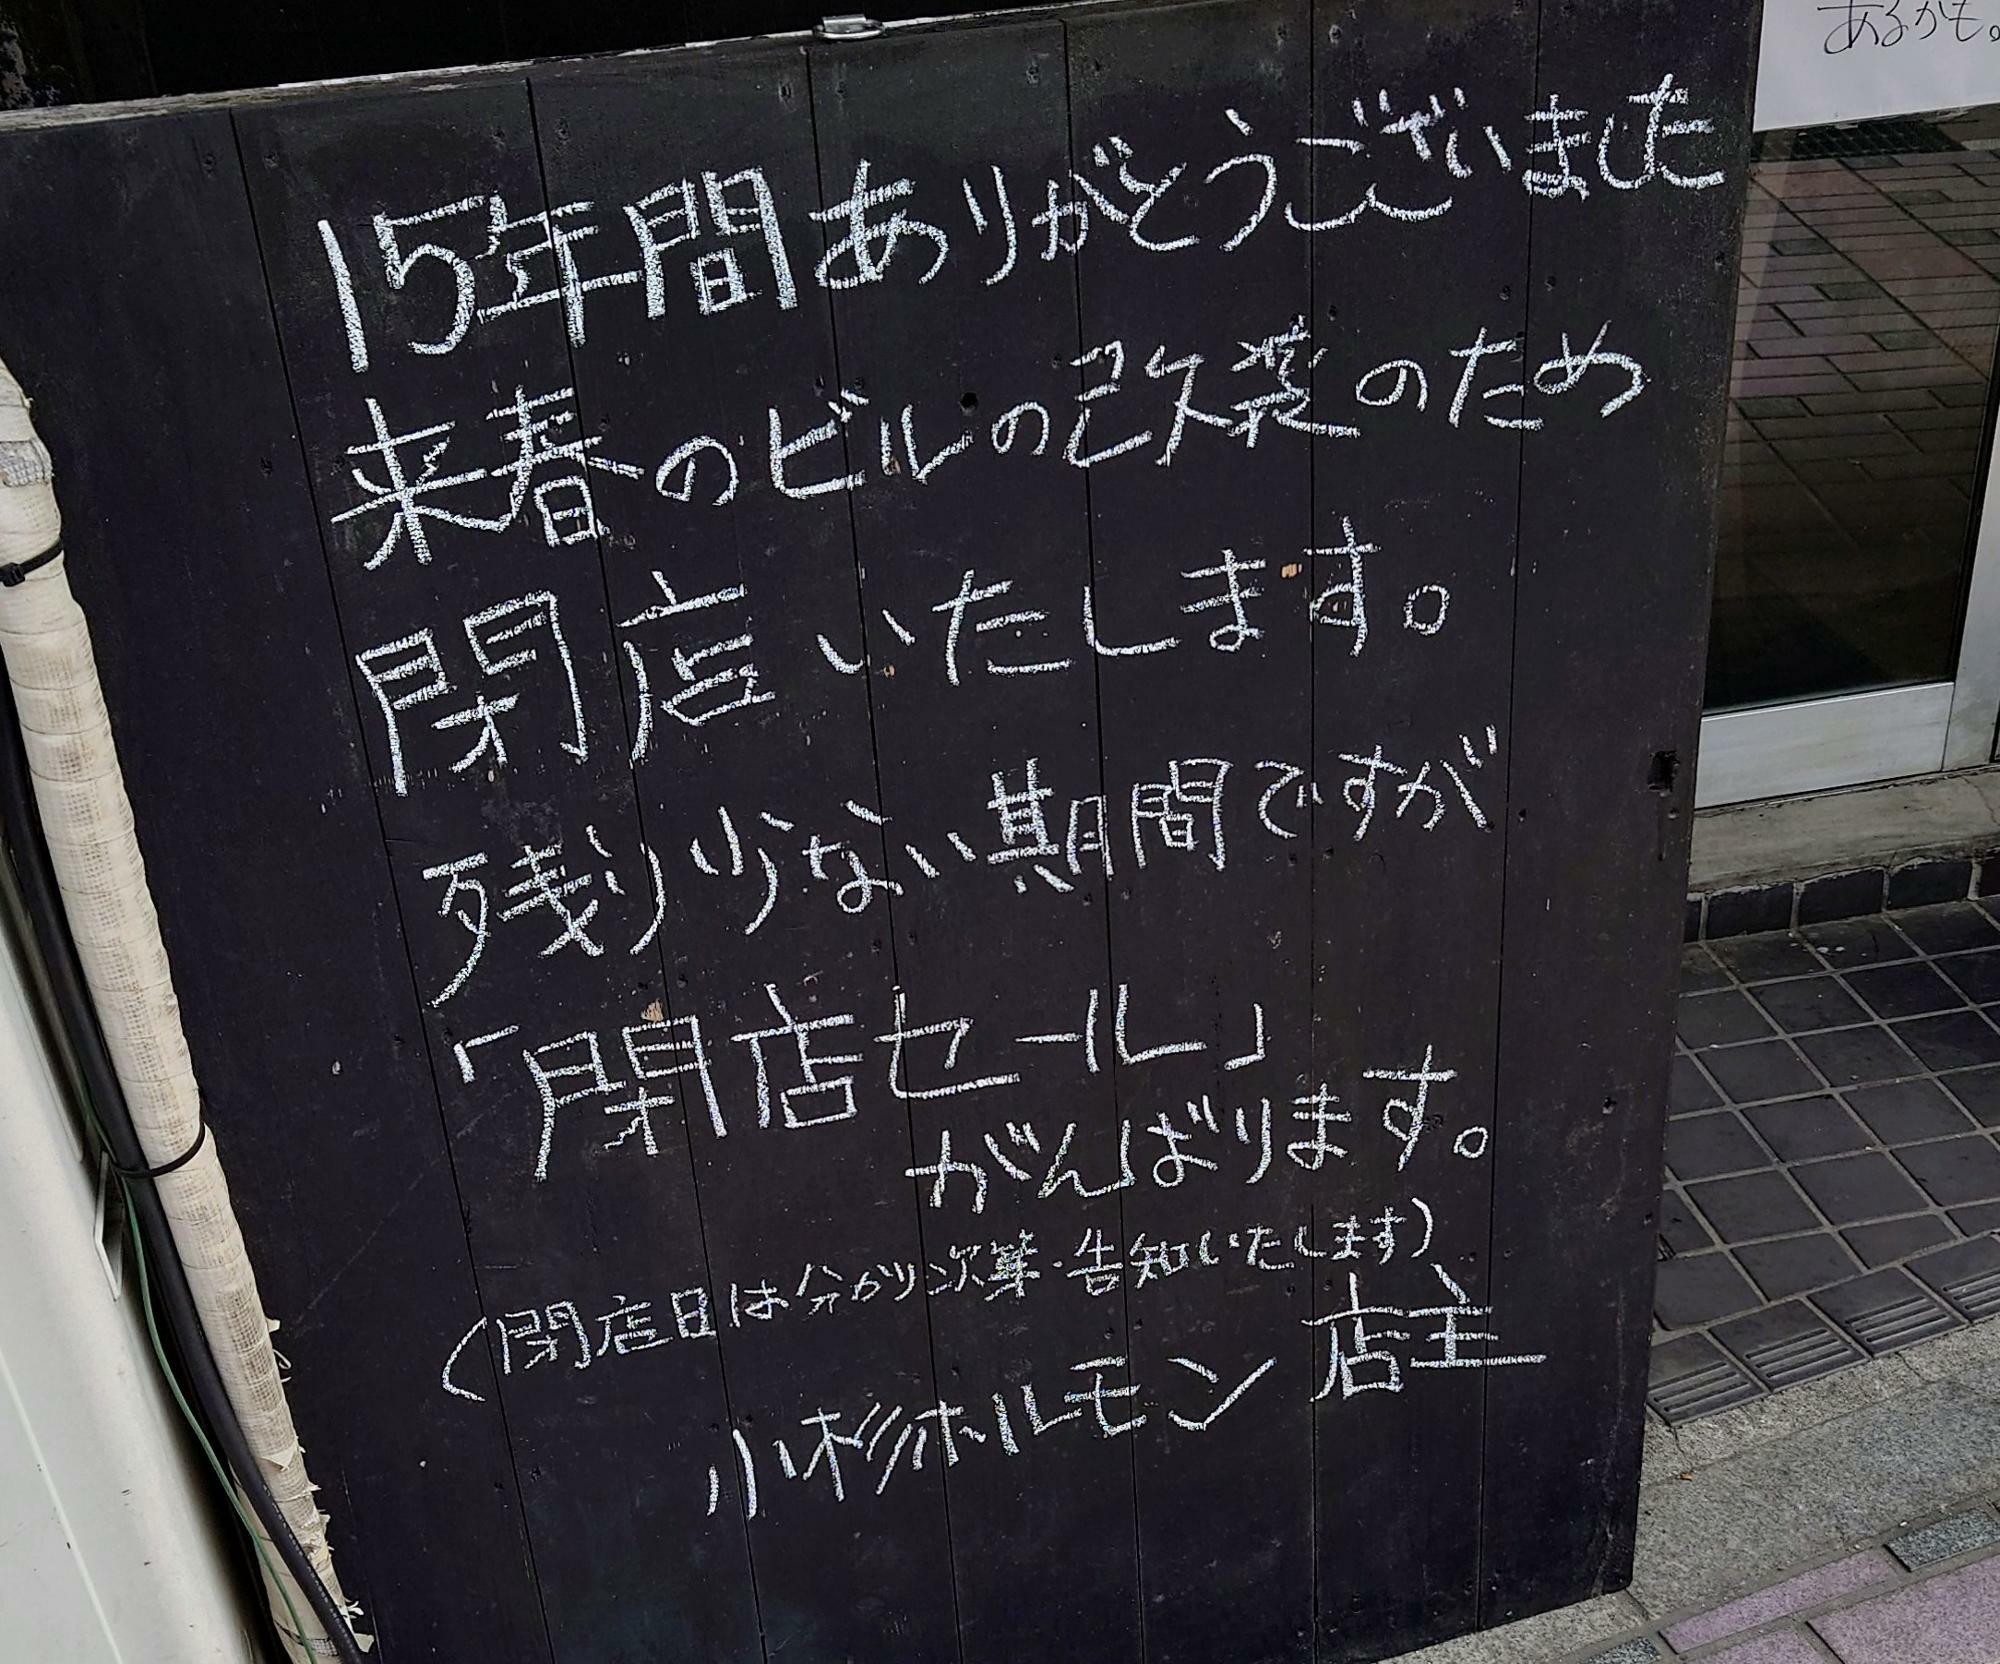 あるかも。
15年間ありがとうございました
来春のビルの改築のため
閉店いたします。
残り少ない期間ですが
「閉店セール」
がんばります。
(閉店日は分かり次第・告知いたします)
小杉ホルモン 店主